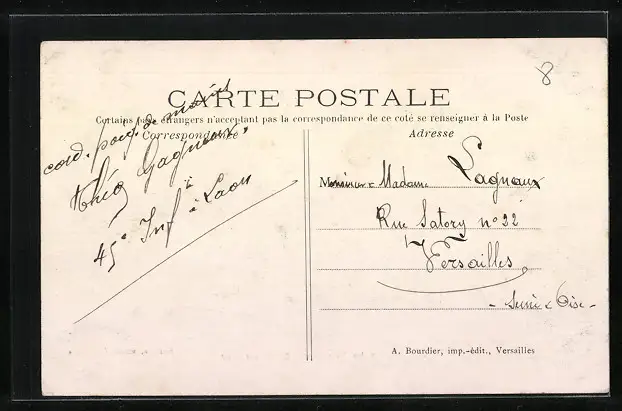 8
CARTE POSTALE
Certains pays étrangers n'acceptant pas la correspondance de ce coté se renseigner à la Poste
Correspondance
Adresse
cord. poig. de
Gagneux
45e Inf à Laon
Monsieur & Madame Gagneux
Rue Satory nº 22
Versailles
- Seine & Oise -
A. Bourdier, imp.-édit., Versailles